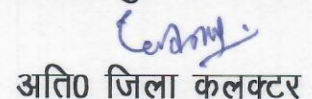 अति0 जिला कलक्टर